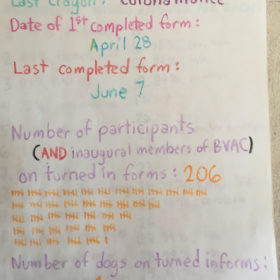 Last Crayon:
Date of 1st completed form:
April 28
Last completed form:
June 7
Number of participants
(AND inaugural members of BVAC)
on turned in forms: 206
Number of dogs on turned in forms: